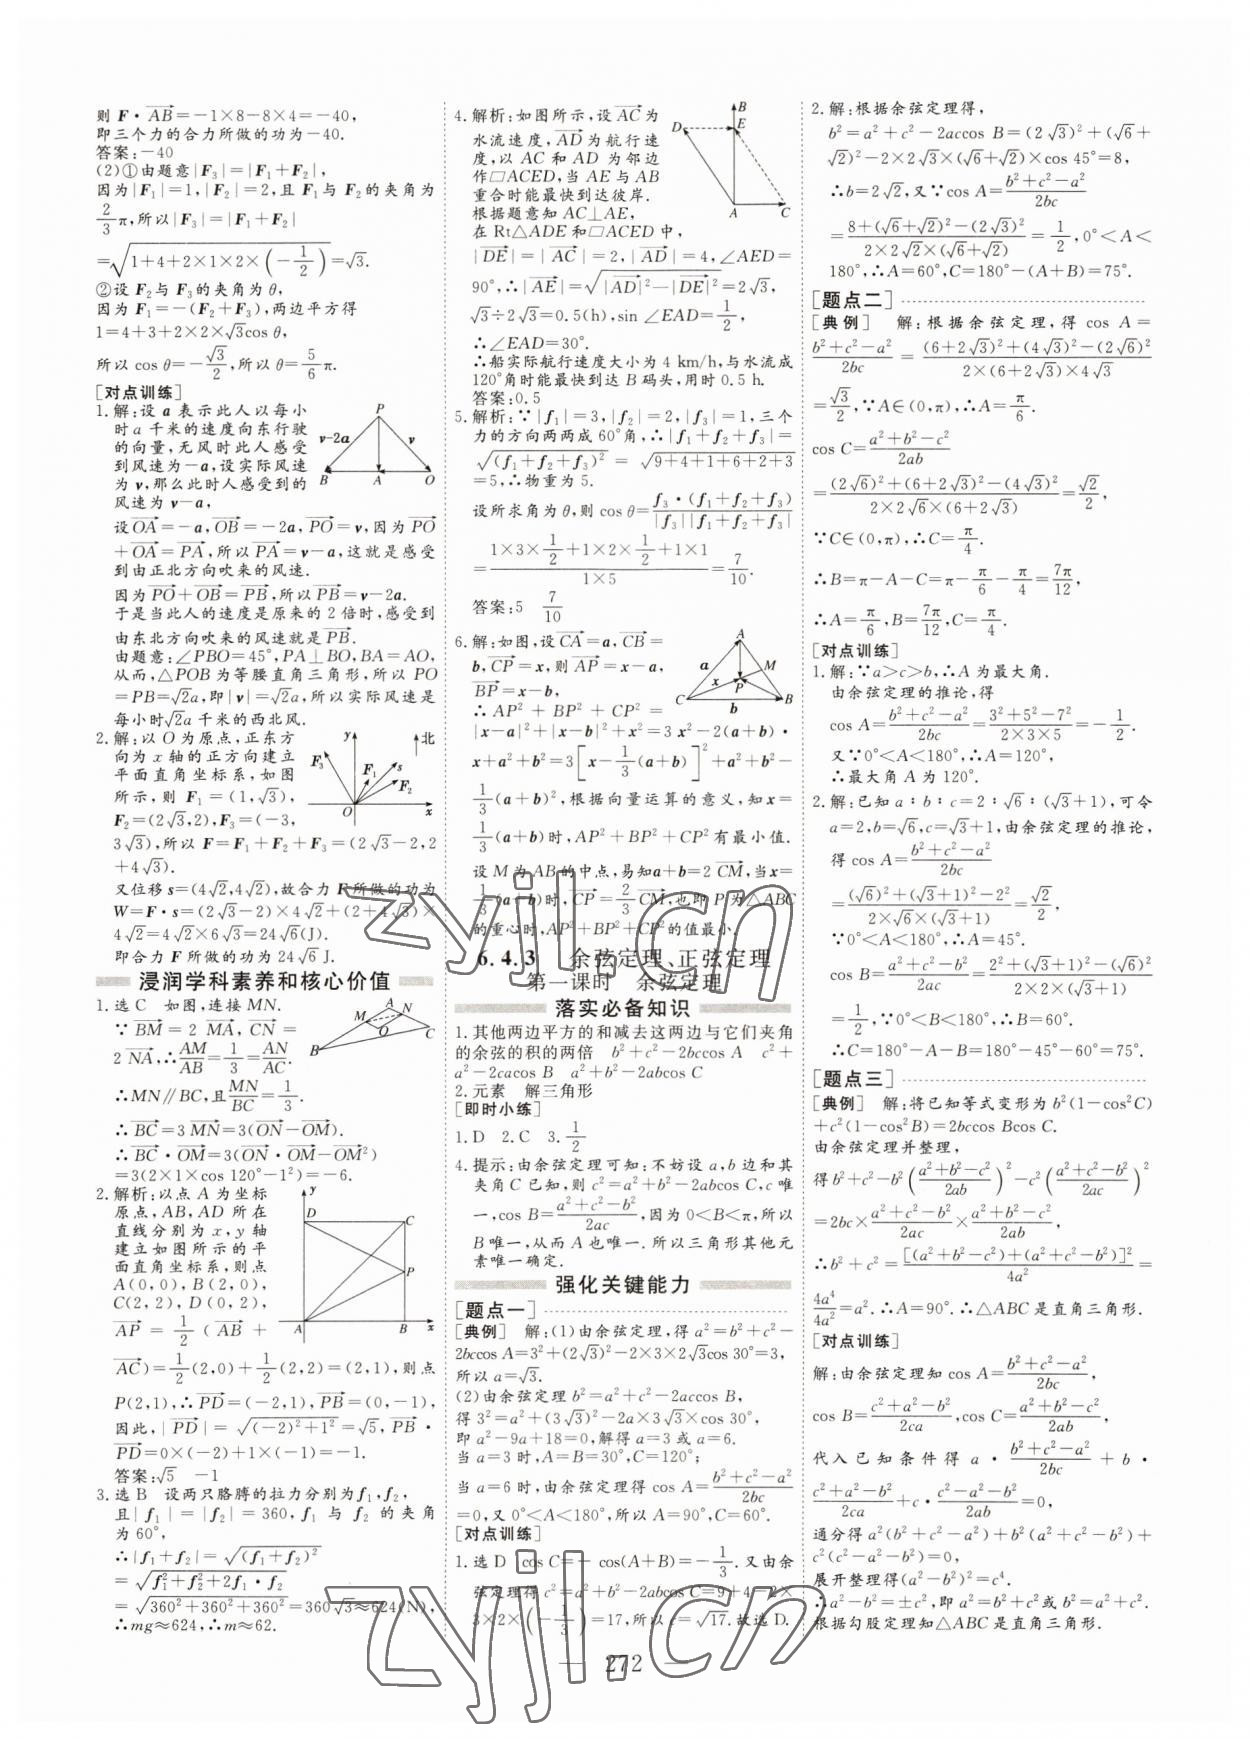 则 F·AB=-1×8-8×4=-40,
即三个力的合力所做的功为-40.
答案:-40
(2)①由题意|F₃|=|F₁+F₂|,
因为|F₁|=1,|F₂|=2,且 F₁与 F₂的夹角为
2/3 π,所以|F₃|=|F₁+F₂|
=√(1+4+2×1×2×(-1/2))=√3.
②设 F₂与 F₃的夹角为θ,
因为 F₁=-(F₂+F₃),两边平方得
1=4+3+2×2×√3cos θ,
所以 cos θ=-√3/2,所以θ=5/6 π.
[对点训练]
1.解:设 a 表示此人以每小
时 a 千米的速度向东行驶
的向量,无风时此人感受
到风速为-a,设实际风速
为 v,那么此时人感受到的
风速为 v-a,
P v-2a v B A O
设OA=-a,OB=-2a,PO=v,因为PO
+OA=PA,所以PA=v-a,这就是感受
到由正北方向吹来的风速.
因为PO+OB=PB,所以PB=v-2a.
于是当此人的速度是原来的 2 倍时,感受到
由东北方向吹来的风速就是PB.
由题意:∠PBO=45°,PA⊥BO,BA=AO,
从而,△POB为等腰直角三角形,所以 PO
=PB=√2a,即|v|=√2a,所以实际风速是
每小时√2a 千米的西北风.
2.解:以 O 为原点,正东方
向为 x 轴的正方向建立
平面直角坐标系,如图
所示,则 F₁=(1,√3),
F₂=(2√3,2),F₃=(-3,
y 北 F₃ F₁ s F₂ O x
3√3),所以 F=F₁+F₂+F₃=(2√3-2,2
+4√3).
又位移 s=(4√2,4√2),故合力 F 所做的功为
W=F·s=(2√3-2)×4√2+(2+4√3)×
4√2=4√2×6√3=24√6(J).
即合力 F 所做的功为 24√6 J.
浸润学科素养和核心价值
1.选C 如图,连接 MN.
∵BM=2MA,CN=
2NA,∴AM/AB=1/3=AN/AC.
∴MN∥BC,且MN/BC=1/3.
A M N O B C
∴BC=3MN=3(ON-OM).
∴BC·OM=3(ON·OM-OM²)
=3(2×1×cos 120°-1²)=-6.
2.解析:以点 A 为坐标
原点,AB,AD 所在
直线分别为 x,y 轴
建立如图所示的平
面直角坐标系,则点
A(0,0),B(2,0),
C(2,2),D(0,2),
y D C P A B x
AP=1/2(AB+
AC)=1/2(2,0)+1/2(2,2)=(2,1),则点
P(2,1),∴PD=(-2,1),PB=(0,-1),
因此,|PD|=√((-2)²+1²)=√5,PB·
PD=0×(-2)+1×(-1)=-1.
答案:√5 -1
3.选B 设两只胳膊的拉力分别为f₁,f₂,
且|f₁|=|f₂|=360,f₁与 f₂的夹角
为60°,
∴|f₁+f₂|=√(f₁+f₂)²
=√(f₁²+f₂²+2f₁·f₂)
=√(360²+360²+360²)=360√3≈624(N),
∴mg≈624,∴m≈62.
4.解析:如图所示,设AC为
水流速度,AD为航行速
度,以 AC 和 AD 为邻边
作▱ACED,当 AE 与 AB
重合时能最快到达彼岸.
根据题意知 AC⊥AE,
在 Rt△ADE 和▱ACED中,
B D E A C
|DE|=|AC|=2,|AD|=4,∠AED=
90°,∴|AE|=√(|AD|²-|DE|²)=2√3,
√3÷2√3=0.5(h),sin ∠EAD=1/2,
∴∠EAD=30°.
∴船实际航行速度大小为 4 km/h,与水流成
120°角时能最快到达 B 码头,用时 0.5 h.
答案:0.5
5.解析:∵|f₁|=3,|f₂|=2,|f₃|=1,三个
力的方向两两成60°角,∴|f₁+f₂+f₃|=
√(f₁+f₂+f₃)²=√(9+4+1+6+2+3)
=5,∴物重为 5.
设所求角为θ,则 cos θ=f₃·(f₁+f₂+f₃)/|f₃||f₁+f₂+f₃|
=(1×3×1/2+1×2×1/2+1×1)/(1×5)=7/10.
答案:5 7/10
6.解:如图,设CA=a,CB=
b,CP=x,则AP=x-a,
BP=x-b,
A a M x P C b B
∴AP²+BP²+CP²=
|x-a|²+|x-b|²+x²=3x²-2(a+b)·
x+a²+b²=3[x-1/3(a+b)]²+a²+b²-
1/3(a+b)²,根据向量运算的意义,知 x=
1/3(a+b)时,AP²+BP²+CP²有最小值.
设 M 为 AB 的中点,易知a+b=2CM,当x=
1/3(a+b)时,CP=2/3CM,也即 P 为△ABC
的重心时,AP²+BP²+CP²的值最小.
6.4.3 余弦定理、正弦定理
第一课时 余弦定理
落实必备知识
1.其他两边平方的和减去这两边与它们夹角
的余弦的积的两倍 b²+c²-2bccos A c²+
a²-2cacos B a²+b²-2abcos C
2.元素 解三角形
[即时小练]
1.D 2.C 3.1/2
4.提示:由余弦定理可知:不妨设 a,b 边和其
夹角 C 已知,则 c²=a²+b²-2abcos C,c 唯
一,cos B=(a²+c²-b²)/2ac,因为 0<B<π,所以
B 唯一,从而 A 也唯一.所以三角形其他元
素唯一确定.
强化关键能力
[题点一]
[典例] 解:(1)由余弦定理,得 a²=b²+c²-
2bccos A=3²+(2√3)²-2×3×2√3cos 30°=3,
所以 a=√3.
(2)由余弦定理 b²=a²+c²-2accos B,
得 3²=a²+(3√3)²-2a×3√3×cos 30°,
即 a²-9a+18=0,解得 a=3 或 a=6.
当 a=3 时,A=B=30°,C=120°;
当 a=6 时,由余弦定理得 cos A=(b²+c²-a²)/2bc
=0,又 0°<A<180°,所以 A=90°,C=60°.
[对点训练]
1.选D cos C=-cos(A+B)=-1/3.又由余
弦定理得 c²=a²+b²-2abcos C=9+4-2×
3×2×(-1/3)=17,所以 c=√17.故选 D.
2.解:根据余弦定理得,
b²=a²+c²-2accos B=(2√3)²+(√6+
√2)²-2×2√3×(√6+√2)×cos 45°=8,
∴b=2√2,又∵cos A=(b²+c²-a²)/2bc
=(8+(√6+√2)²-(2√3)²)/(2×2√2×(√6+√2))=1/2,0°<A<
180°,∴A=60°,C=180°-(A+B)=75°.
[题点二]
[典例] 解:根据余弦定理,得 cos A=
(b²+c²-a²)/2bc=((6+2√3)²+(4√3)²-(2√6)²)/(2×(6+2√3)×4√3)
=√3/2,∵A∈(0,π),∴A=π/6.
cos C=(a²+b²-c²)/2ab
=((2√6)²+(6+2√3)²-(4√3)²)/(2×2√6×(6+2√3))=√2/2,
∵C∈(0,π),∴C=π/4.
∴B=π-A-C=π-π/6-π/4=7π/12,
∴A=π/6,B=7π/12,C=π/4.
[对点训练]
1.解:∵a>c>b,∴A 为最大角.
由余弦定理的推论,得
cos A=(b²+c²-a²)/2bc=(3²+5²-7²)/(2×3×5)=-1/2.
又∵0°<A<180°,∴A=120°,
∴最大角 A 为 120°.
2.解:已知 a∶b∶c=2∶√6∶(√3+1),可令
a=2,b=√6,c=√3+1,由余弦定理的推论,
得 cos A=(b²+c²-a²)/2bc
=((√6)²+(√3+1)²-2²)/(2×√6×(√3+1))=√2/2,
∵0°<A<180°,∴A=45°.
cos B=(a²+c²-b²)/2ac=(2²+(√3+1)²-(√6)²)/(2×2×(√3+1))
=1/2,∵0°<B<180°,∴B=60°.
∴C=180°-A-B=180°-45°-60°=75°.
[题点三]
[典例] 解:将已知等式变形为 b²(1-cos²C)
+c²(1-cos²B)=2bccos Bcos C.
由余弦定理并整理,
得 b²+c²-b²((a²+b²-c²)/2ab)²-c²((a²+c²-b²)/2ac)²
=2bc×(a²+c²-b²)/2ac×(a²+b²-c²)/2ab,
∴b²+c²=[(a²+b²-c²)+(a²+c²-b²)]²/4a²=
4a⁴/4a²=a².∴A=90°.∴△ABC 是直角三角形.
[对点训练]
解:由余弦定理知 cos A=(b²+c²-a²)/2bc,
cos B=(c²+a²-b²)/2ca,cos C=(a²+b²-c²)/2ab,
代入已知条件得 a·(b²+c²-a²)/2bc+b·
(c²+a²-b²)/2ca+c·(c²-a²-b²)/2ab=0,
通分得 a²(b²+c²-a²)+b²(a²+c²-b²)+
c²(c²-a²-b²)=0,
展开整理得(a²-b²)²=c⁴.
∴a²-b²=±c²,即 a²=b²+c²或b²=a²+c².
根据勾股定理知△ABC 是直角三角形.
272
zyjl.cn
zyjl.cn